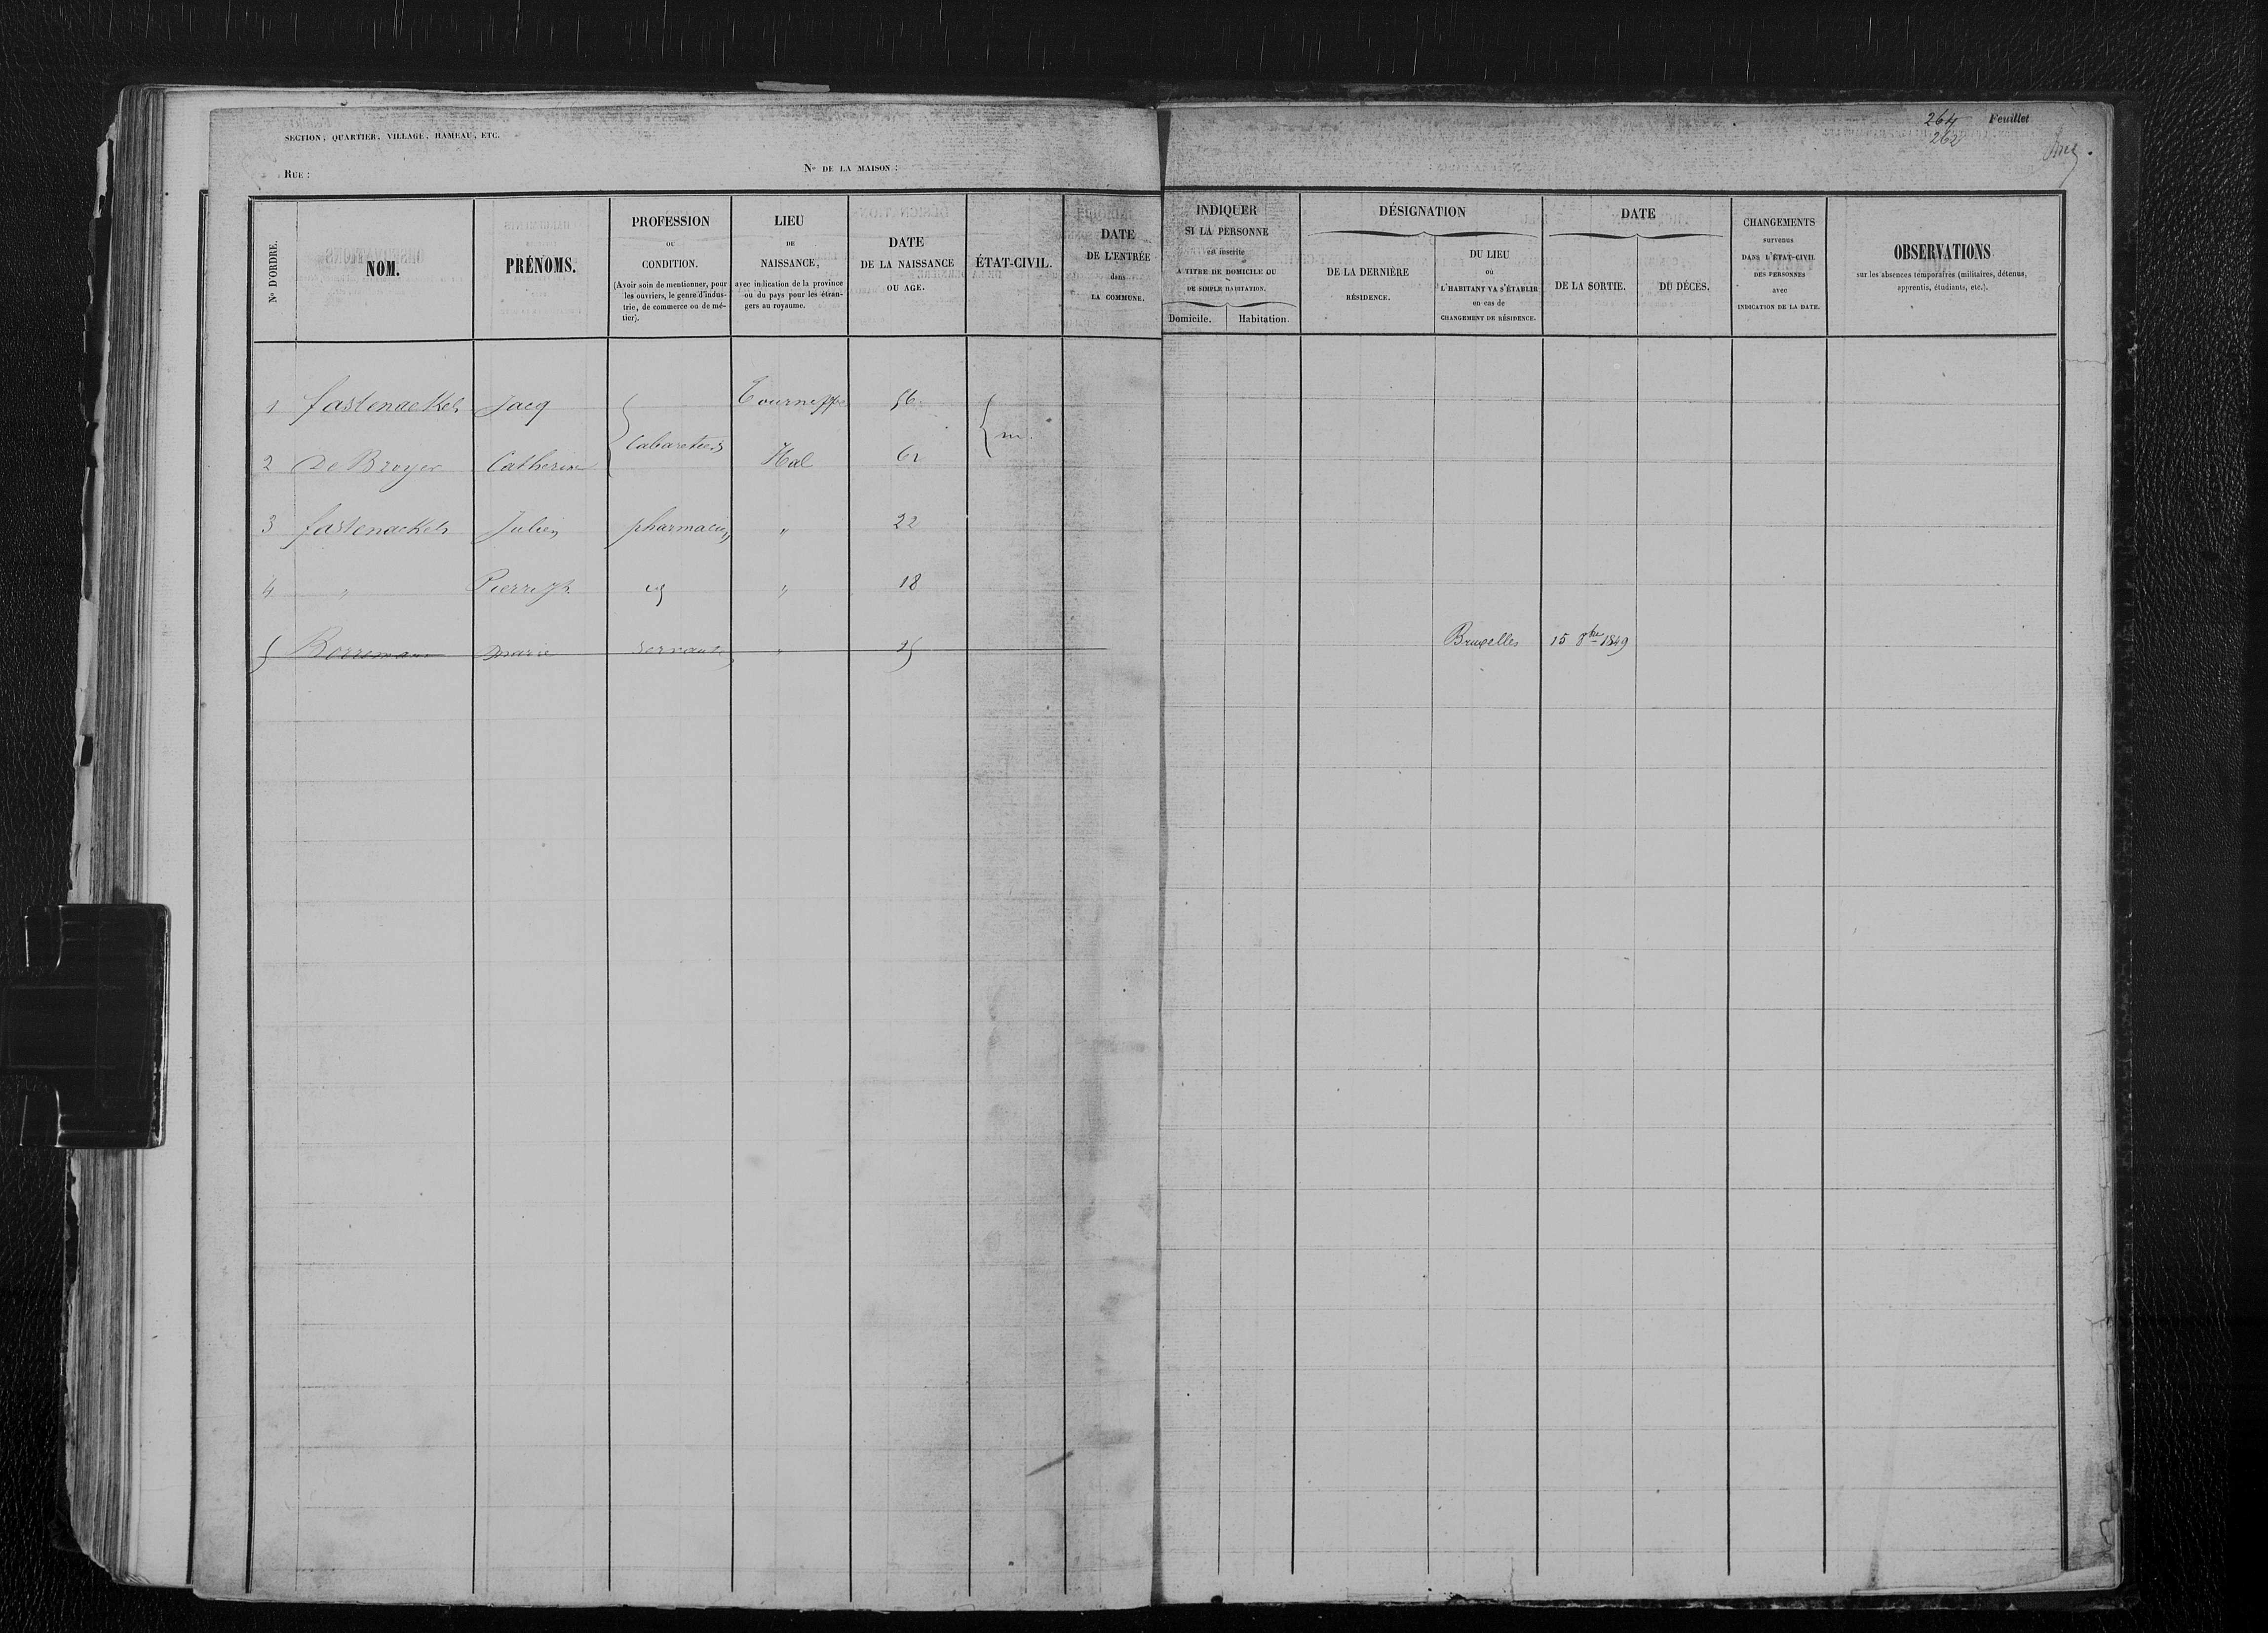 264 Feuillet
262
SECTION, QUARTIER, VILLAGE, HAMEAU, ETC.
RUE : No DE LA MAISON :
No D'ORDRE.
NOM.
PRÉNOMS.
PROFESSION
OU
CONDITION.
(Avoir soin de mentionner, pour
les ouvriers, le genre d'indus-
trie, de commerce ou de mé-
tier).
LIEU
DE
NAISSANCE,
avec indication de la province
ou du pays pour les étran-
gers au royaume.
DATE
DE LA NAISSANCE
OU AGE.
ÉTAT-CIVIL.
DATE
DE L'ENTRÉE
dans
LA COMMUNE.
INDIQUER
SI LA PERSONNE
est inscrite
A TITRE DE DOMICILE OU
DE SIMPLE HABITATION.
Domicile. Habitation.
DÉSIGNATION
DE LA DERNIÈRE
RÉSIDENCE.
DU LIEU
où
L'HABITANT VA S'ÉTABLIR
en cas de
CHANGEMENT DE RÉSIDENCE.
DATE
DE LA SORTIE. DU DÉCES.
CHANGEMENTS
survenus
DANS L'ÉTAT-CIVIL
DES PERSONNES
avec
INDICATION DE LA DATE.
OBSERVATIONS
sur les absences temporaires (militaires, détenus,
apprentis, étudiants, etc.).
1 fastenaekels Jacq Tourneppe 56
cabaretiers m.
2 De Broyer Catherine Hal 62
3 fastenaekels Julien pharmacien " 22
4 " Pierre " 18
5 Borremans Marie servante " 25 Bruxelles 15 8bre 1849